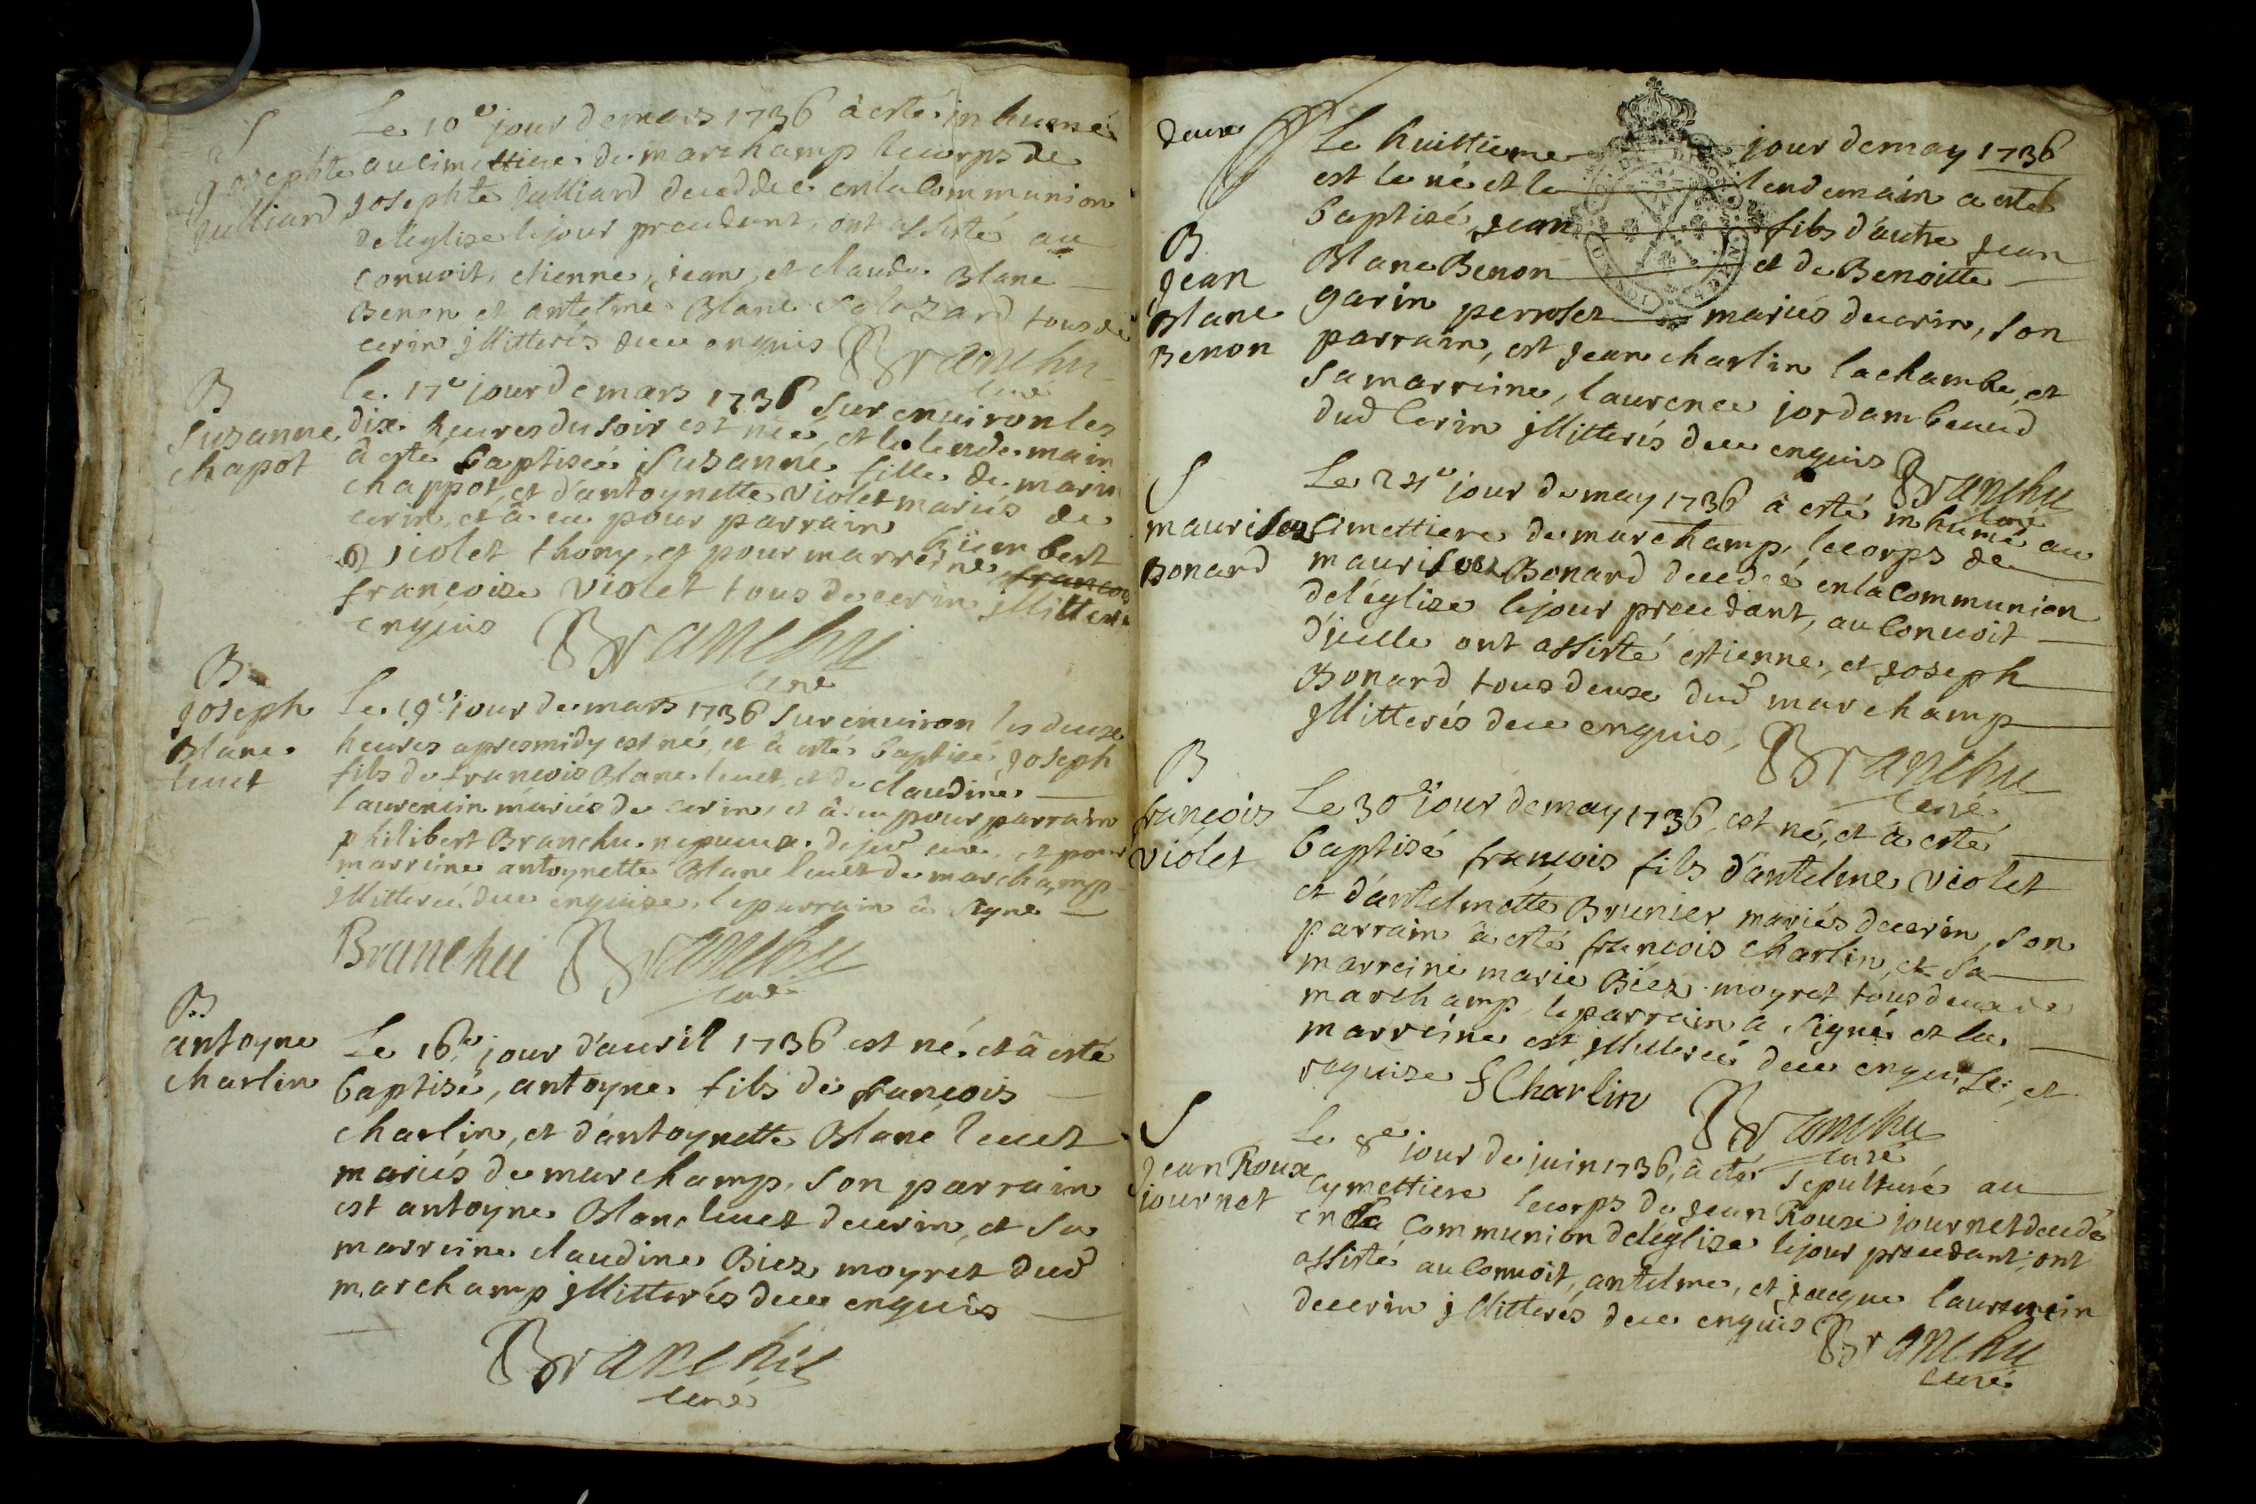 S
Josephte
Julliard
Le 10e jour de mars 1736 à esté inhumé
au cimettiere de marchamp le corps de
Josephte Julliard deceddée en la Communion
de léglize le jour precedent, ont assisté au
convoit, etienne, jean, et claude Blanc
Benon et antelme Blanc tous de
cerin jllitterés de ce enquis Branchu
curé
B
Suzanne
chapot
le 17e jour de mars 1736 sur environ les
dix heures du soir est née, et le lendemain
à esté baptisée Suzanne fille de marin
chappot, et d'antoynette violet mariés de
cerin, et à eu pour parrain
violet thony, et pour marreine
francoise violet tous de cerin jllitterés
enquis Branchu
curé
B
Joseph
Blanc
Le 19e jour de mars 1736 sur environ les deux
heures apres midy est né, et à esté baptisé Joseph
fils de francois Blanc et de claudine
laurencin mariés de cerin, et à eu pour parrain
philibert Branchu et pour
marreine antoynette Blanc de marchamp
jllitterée de ce enquise, le parrain à signé
Branchu Branchu
curé
B
antoyne
charlin
Le 16e jour d'auril 1736 est né, et à esté
baptisé, antoyne fils de francois
charlin, et d'antoynette Blanc
mariés de marchamp, son parrain
est antoyne Blanc de cerin, et sa
marreine claudine Biez moyret dud
marchamp jllitterés de ce enquis
Branchu
curé
deux
B
Jean
Blanc
Benon
Le huittieme jour de may 1736
est le né et le lendemain a esté
baptizé, jean fils d'autre Jean
Blanc Benon et de Benoitte
garin perroset mariés de cerin, son
parrain, est Jean charlin lachambe, et
sa marreine, laurence jordam
dud Cerin jllitterés de ce enquis Branchu
curé
S
Bonard
Le jour de may 1736 à esté inhumé au
Cimettiere de marchamp, le corps de
Bonard deceddé en la Communion
de léglize le jour precedant, au Convoit
d'icelle ont assisté estienne, et Joseph
Bonard tous deux dud marchamp
jllitterés de ce enquis, Branchu
curé
B
francois
violet
Le 30e jour de may 1736, est né, et à esté
baptisé francois fils d'antelme violet
et d'antelmette Brunier mariés de cerin, son
parrain à esté francois charlin, et sa
marreine marie Biez moyret tous deux de
marchamp, le parrain a signé et la
marreine est jllitterée de ce enquise, et
requise f Charlin Branchu
curé
S
Jean Roux
journet
Le 8e jour de juin 1736, à été sepulturé au
Cymettiere le corps de Jean Roux journet decedé
en la Communion de léglize le jour precedant, ont
assisté au Convoit, antelme, et jacque laurencin
de cerin jllitterés de ce enquis Branchu
curé